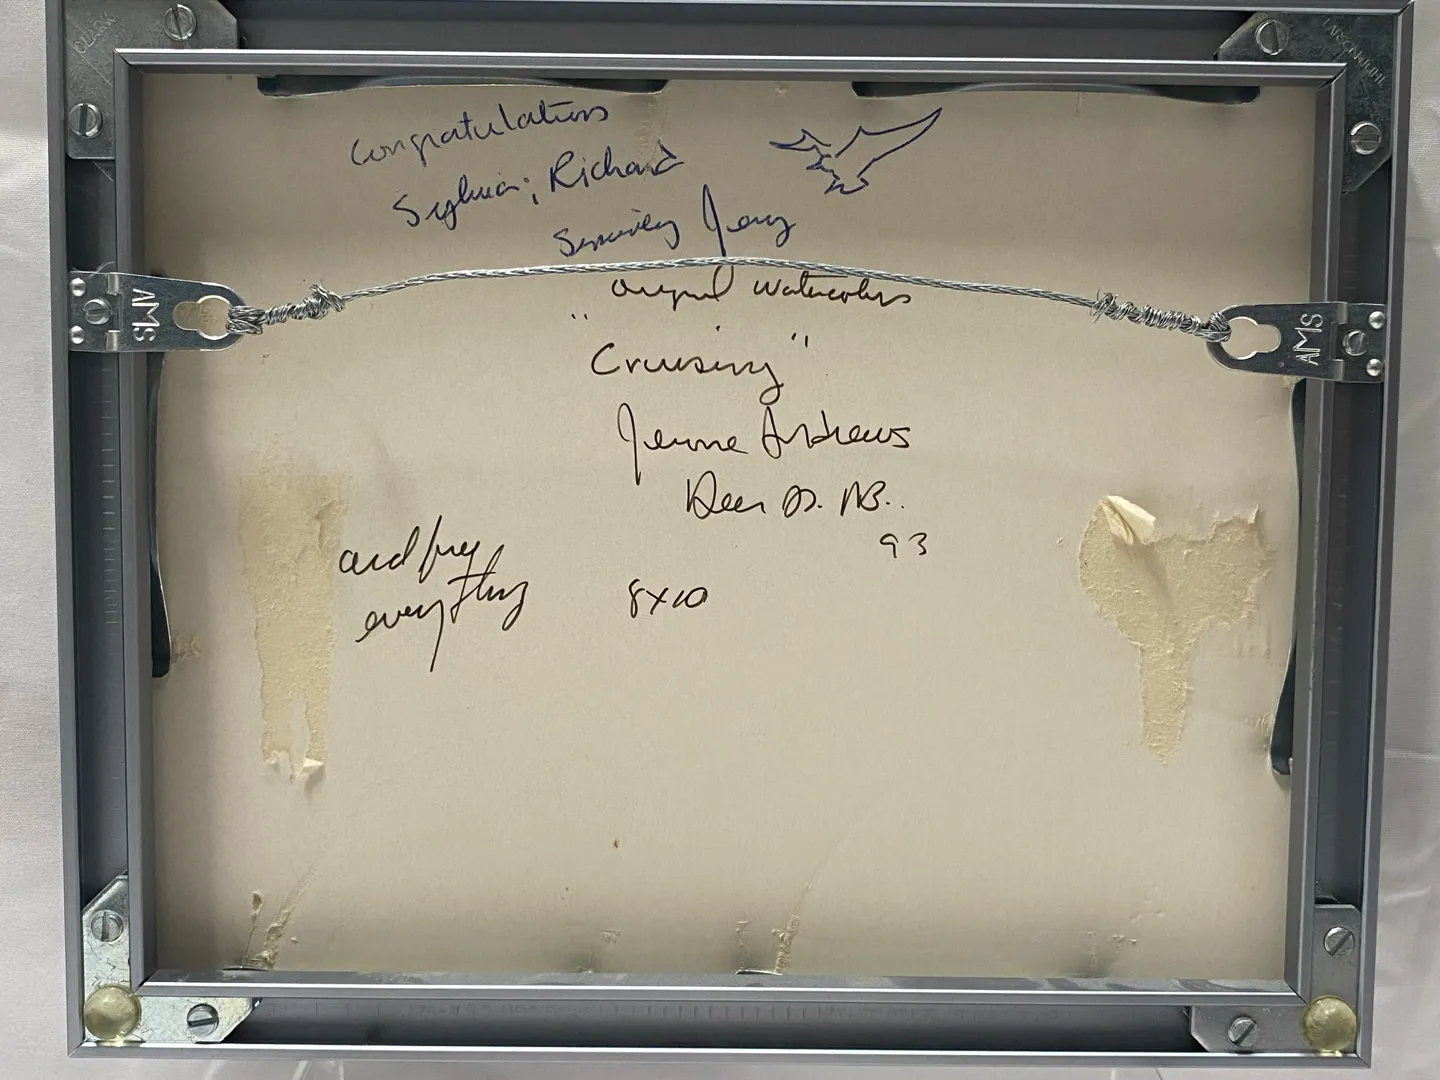 Congratulations
Sylvia; Richard
Sincerely Jerry
original watercolors
"Cruising"
Andrews
Deer Is. NB..
93
acid free
everything
8x10
AMS
AMS